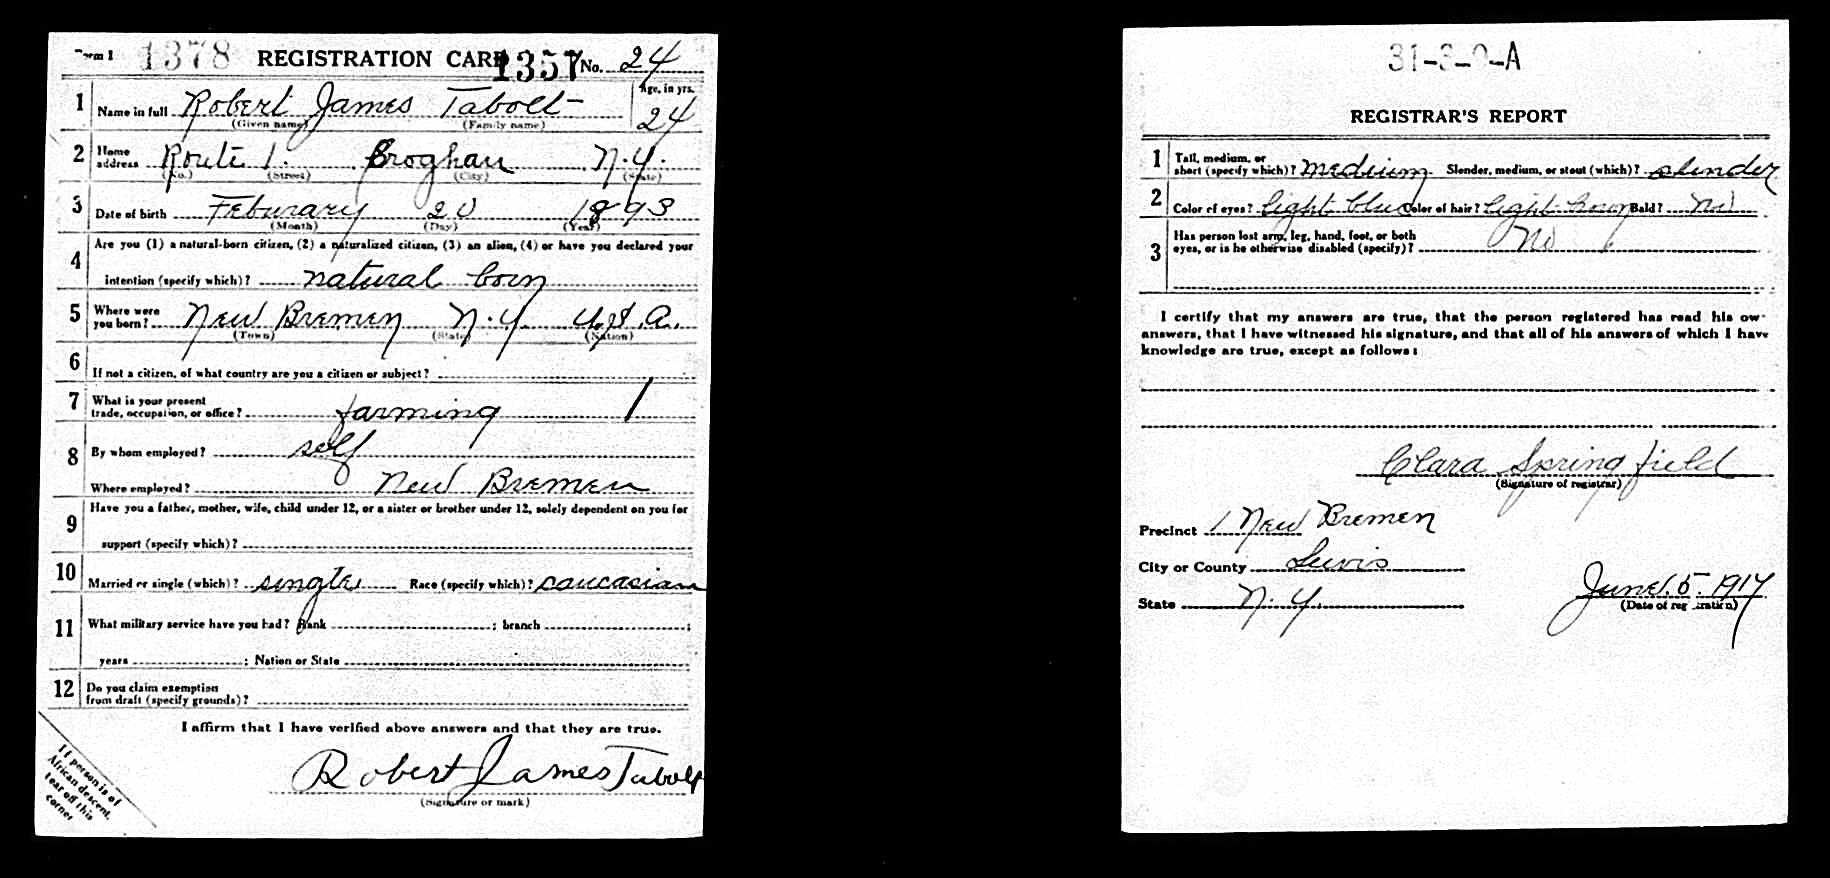 Form 1 1378 REGISTRATION CARD 1357 No. 24
1 Name in full Robert James Tabolt Age, in yrs. 24
(Given name) (Family name)
2 Home address Route 1. Croghan N.Y.
(No.) (Street) (City) (State)
3 Date of birth Feburary 20 1893
(Month) (Day) (Year)
4 Are you (1) a natural-born citizen, (2) a naturalized citizen, (3) an alien, (4) or have you declared your
intention (specify which)? natural born
5 Where were you born? New Bremen N.Y. U.S.A.
(Town) (State) (Nation)
6 If not a citizen, of what country are you a citizen or subject?
7 What is your present trade, occupation, or office? farming 1
8 By whom employed? self
Where employed? New Bremen
9 Have you a father, mother, wife, child under 12, or a sister or brother under 12, solely dependent on you for
support (specify which)?
10 Married or single (which)? single Race (specify which)? caucasian
11 What military service have you had? Rank ; branch ;
years ; Nation or State
12 Do you claim exemption from draft (specify grounds)?
I affirm that I have verified above answers and that they are true.
Robert James Tabolt
(Signature or mark)
If person is of
African descent,
tear off this
corner
31-3- -A
REGISTRAR'S REPORT
1 Tall, medium, or short (specify which)? medium Slender, medium, or stout (which)? slender
2 Color of eyes? light blue Color of hair? light brown Bald? No
3 Has person lost arm, leg, hand, foot, or both
eyes, or is he otherwise disabled (specify)? No
I certify that my answers are true, that the person registered has read his ow-
answers, that I have witnessed his signature, and that all of his answers of which I have
knowledge are true, except as follows:
Clara Springfield
(Signature of registrar)
Precinct 1 New Bremen
City or County Lewis
State N.Y.
June 5. 1917
(Date of registration)